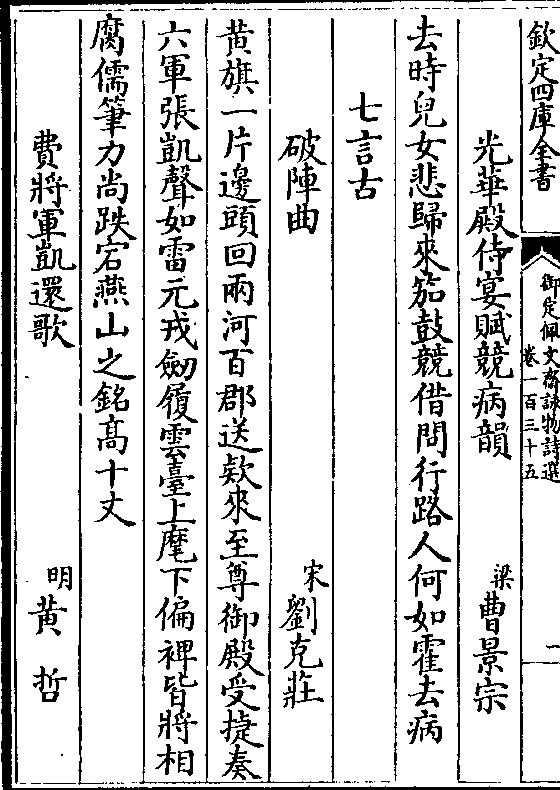 欽定四庫全書
御定佩文齋詠物詩選
卷一百三十五
一
光華殿侍宴賦競病韻 梁曹景宗
去時兒女悲歸來笳鼓競借問行路人何如霍去病
七言古
破陣曲 宋劉克莊
黄旗一片邊頭回兩河百郡送欵來至尊御殿受捷奏
六軍張凱聲如雷元戎劒履雲臺上麾下偏裨皆將相
腐儒筆力尚跌宕燕山之銘髙十丈
費將軍凱還歌 明黄哲